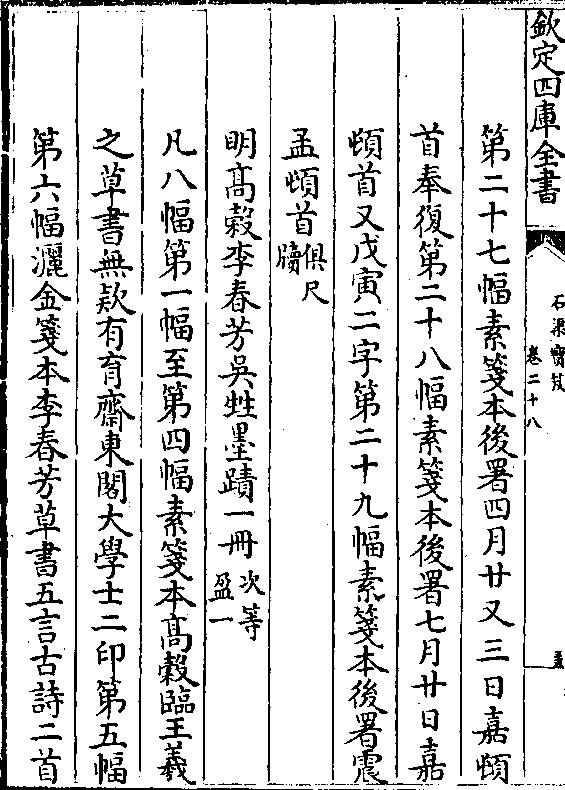 欽定四庫全書
石渠寳笈
卷二十八
第二十七幅素箋本後署四月廿又三日嘉頓
首奉復第二十八幅素箋本後署七月廿日嘉
頓首又戊寅二字第二十九幅素箋本後署震
孟頓首俱尺
牘
明髙榖李春芳吳甡墨蹟一冊次等
盈一
凡八幅第一幅至第四幅素箋本髙榖臨王羲
之草書無款有育齋東閣大學士二印第五幅
第六幅灑金箋本李春芳草書五言古詩二首